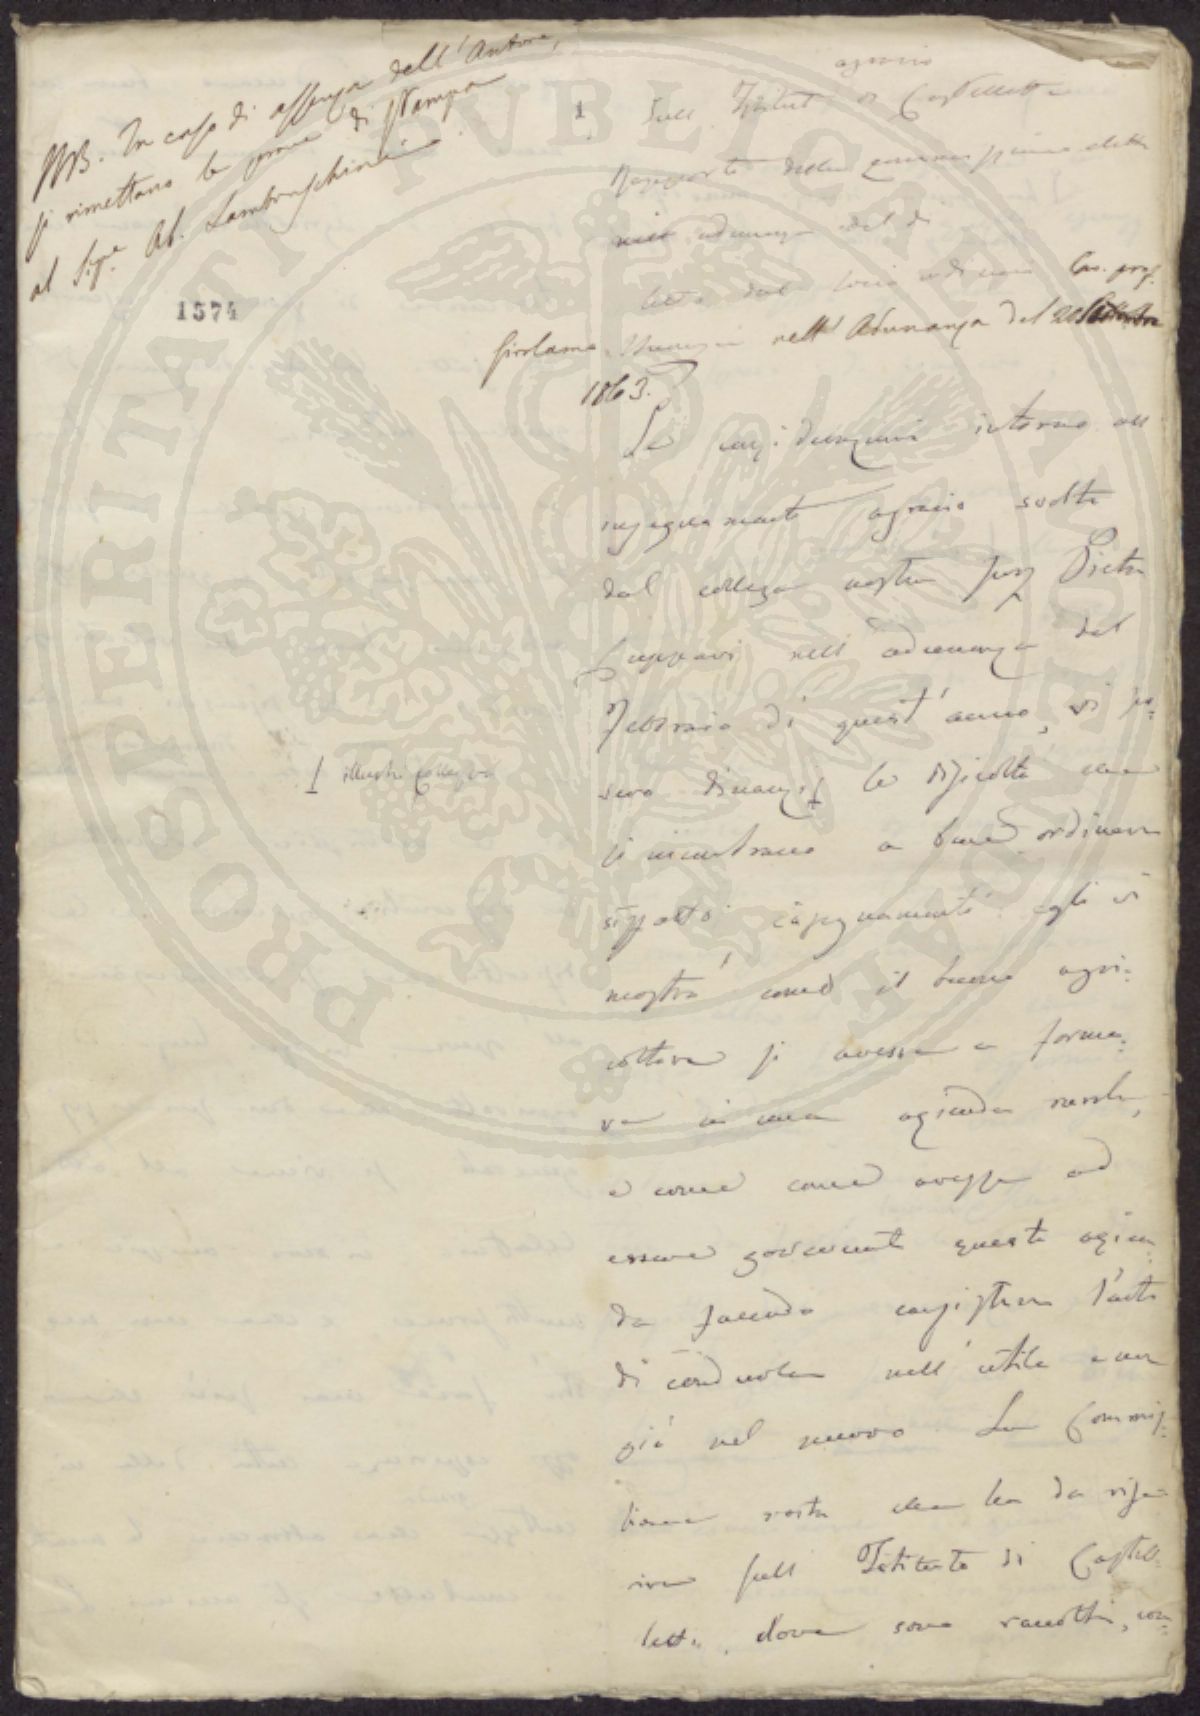 NB. In caso di assenza dell'Autore,
si rimettano le prove di stampa
al Sigr. Ab. Lambruschini
1574
1
agrario
Sull'Istituto di Castelletti
Rapporto della commissione eletta
nell'adunanza del dì
letto dal socio ordinario Cav. prof.
Girolamo nell'Adunanza del 20 Settembre
1863.
Le considerazioni intorno all'
insegnamento agrario svolte
dal collega nostro Pietro
Cuppari nell'adunanza del
Febbraio di quest'anno, vi po-
sero dinanzi le difficoltà che
illustri colleghi
si incontrano a bene ordinare
siffatto insegnamento: egli vi
mostrò come il buono agri-
coltore si avesse a forma-
re in una azienda rurale,
e come avesse ad
essere governata questa azien-
da facendo consistere l'arte
di condurla nell'utile e non
già nel nuovo. La Commis-
sione vostra che ha da rife-
rire sull'Istituto di Castel-
letti, dove sono raccolti, con-
PROSPERITATI PUBLICAE AUGENDAE